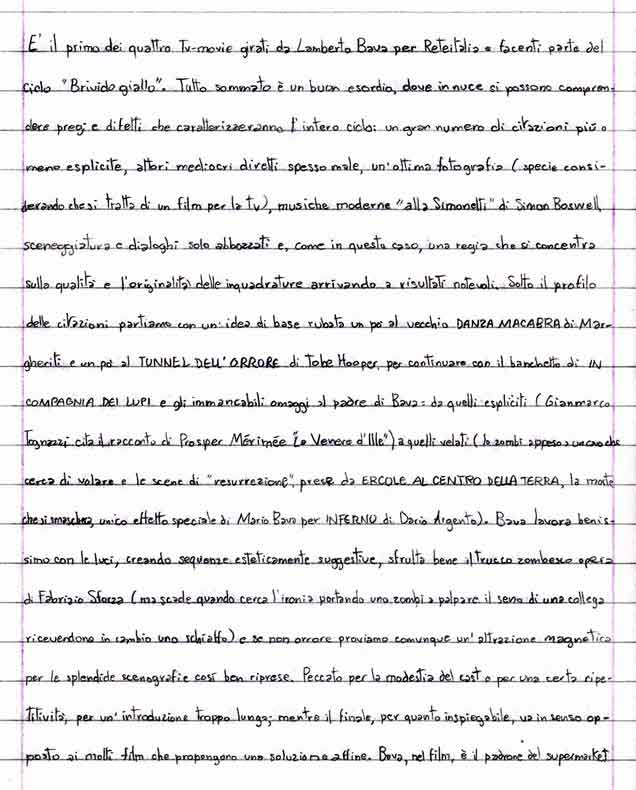 E' il primo dei quattro Tv-movie girati da Lamberto Bava per Reteitalia e facenti parte del
ciclo "Brivido giallo". Tutto sommato è un buon esordio, dove in nuce si possono compren-
dere pregi e difetti che caratterizzeranno l'intero ciclo: un gran numero di citazioni più o
meno esplicite, attori mediocri diretti spesso male, un'ottima fotografia (specie consi-
derando che si tratta di un film per la tv), musiche moderne "alla Simonetti" di Simon Boswell,
sceneggiatura e dialoghi solo abbozzati e, come in questo caso, una regia che si concentra
sulla qualità e l'originalità delle inquadrature arrivando a risultati notevoli. Sotto il profilo
delle citazioni partiamo con un'idea di base rubata un pò al vecchio DANZA MACABRA di Mar-
gheriti e un pò al TUNNEL DELL'ORRORE di Tobe Hooper, per continuare con il banchetto di IN
COMPAGNIA DEI LUPI e gli immancabili omaggi al padre di Bava: da quelli espliciti (Gianmarco
Tognazzi cita il racconto di Prosper Mérimée "La Venere d'Ille") a quelli velati (lo zombi appeso a un cavo che
cerca di volare e le scene di "resurrezione", prese da ERCOLE AL CENTRO DELLA TERRA, la morte
che si smaschera, unico effetto speciale di Mario Bava per INFERNO di Dario Argento). Bava lavora benis-
simo con le luci, creando sequenze esteticamente suggestive, sfrutta bene il trucco zombesco opera
di Fabrizio Sforza (ma scade quando cerca l'ironia portando uno zombi a palpare il seno di una collega
ricevendone in cambio uno schiaffo) e se non orrore proviamo comunque un'attrazione magnetica
per le splendide scenografie così ben riprese. Peccato per la modestia del cast e per una certa ripe-
titività, per un'introduzione troppo lunga; mentre il finale, per quanto inspiegabile, va in senso op-
posto ai molti film che propongono una soluzione affine. Bava, nel film, è il padrone del supermarket